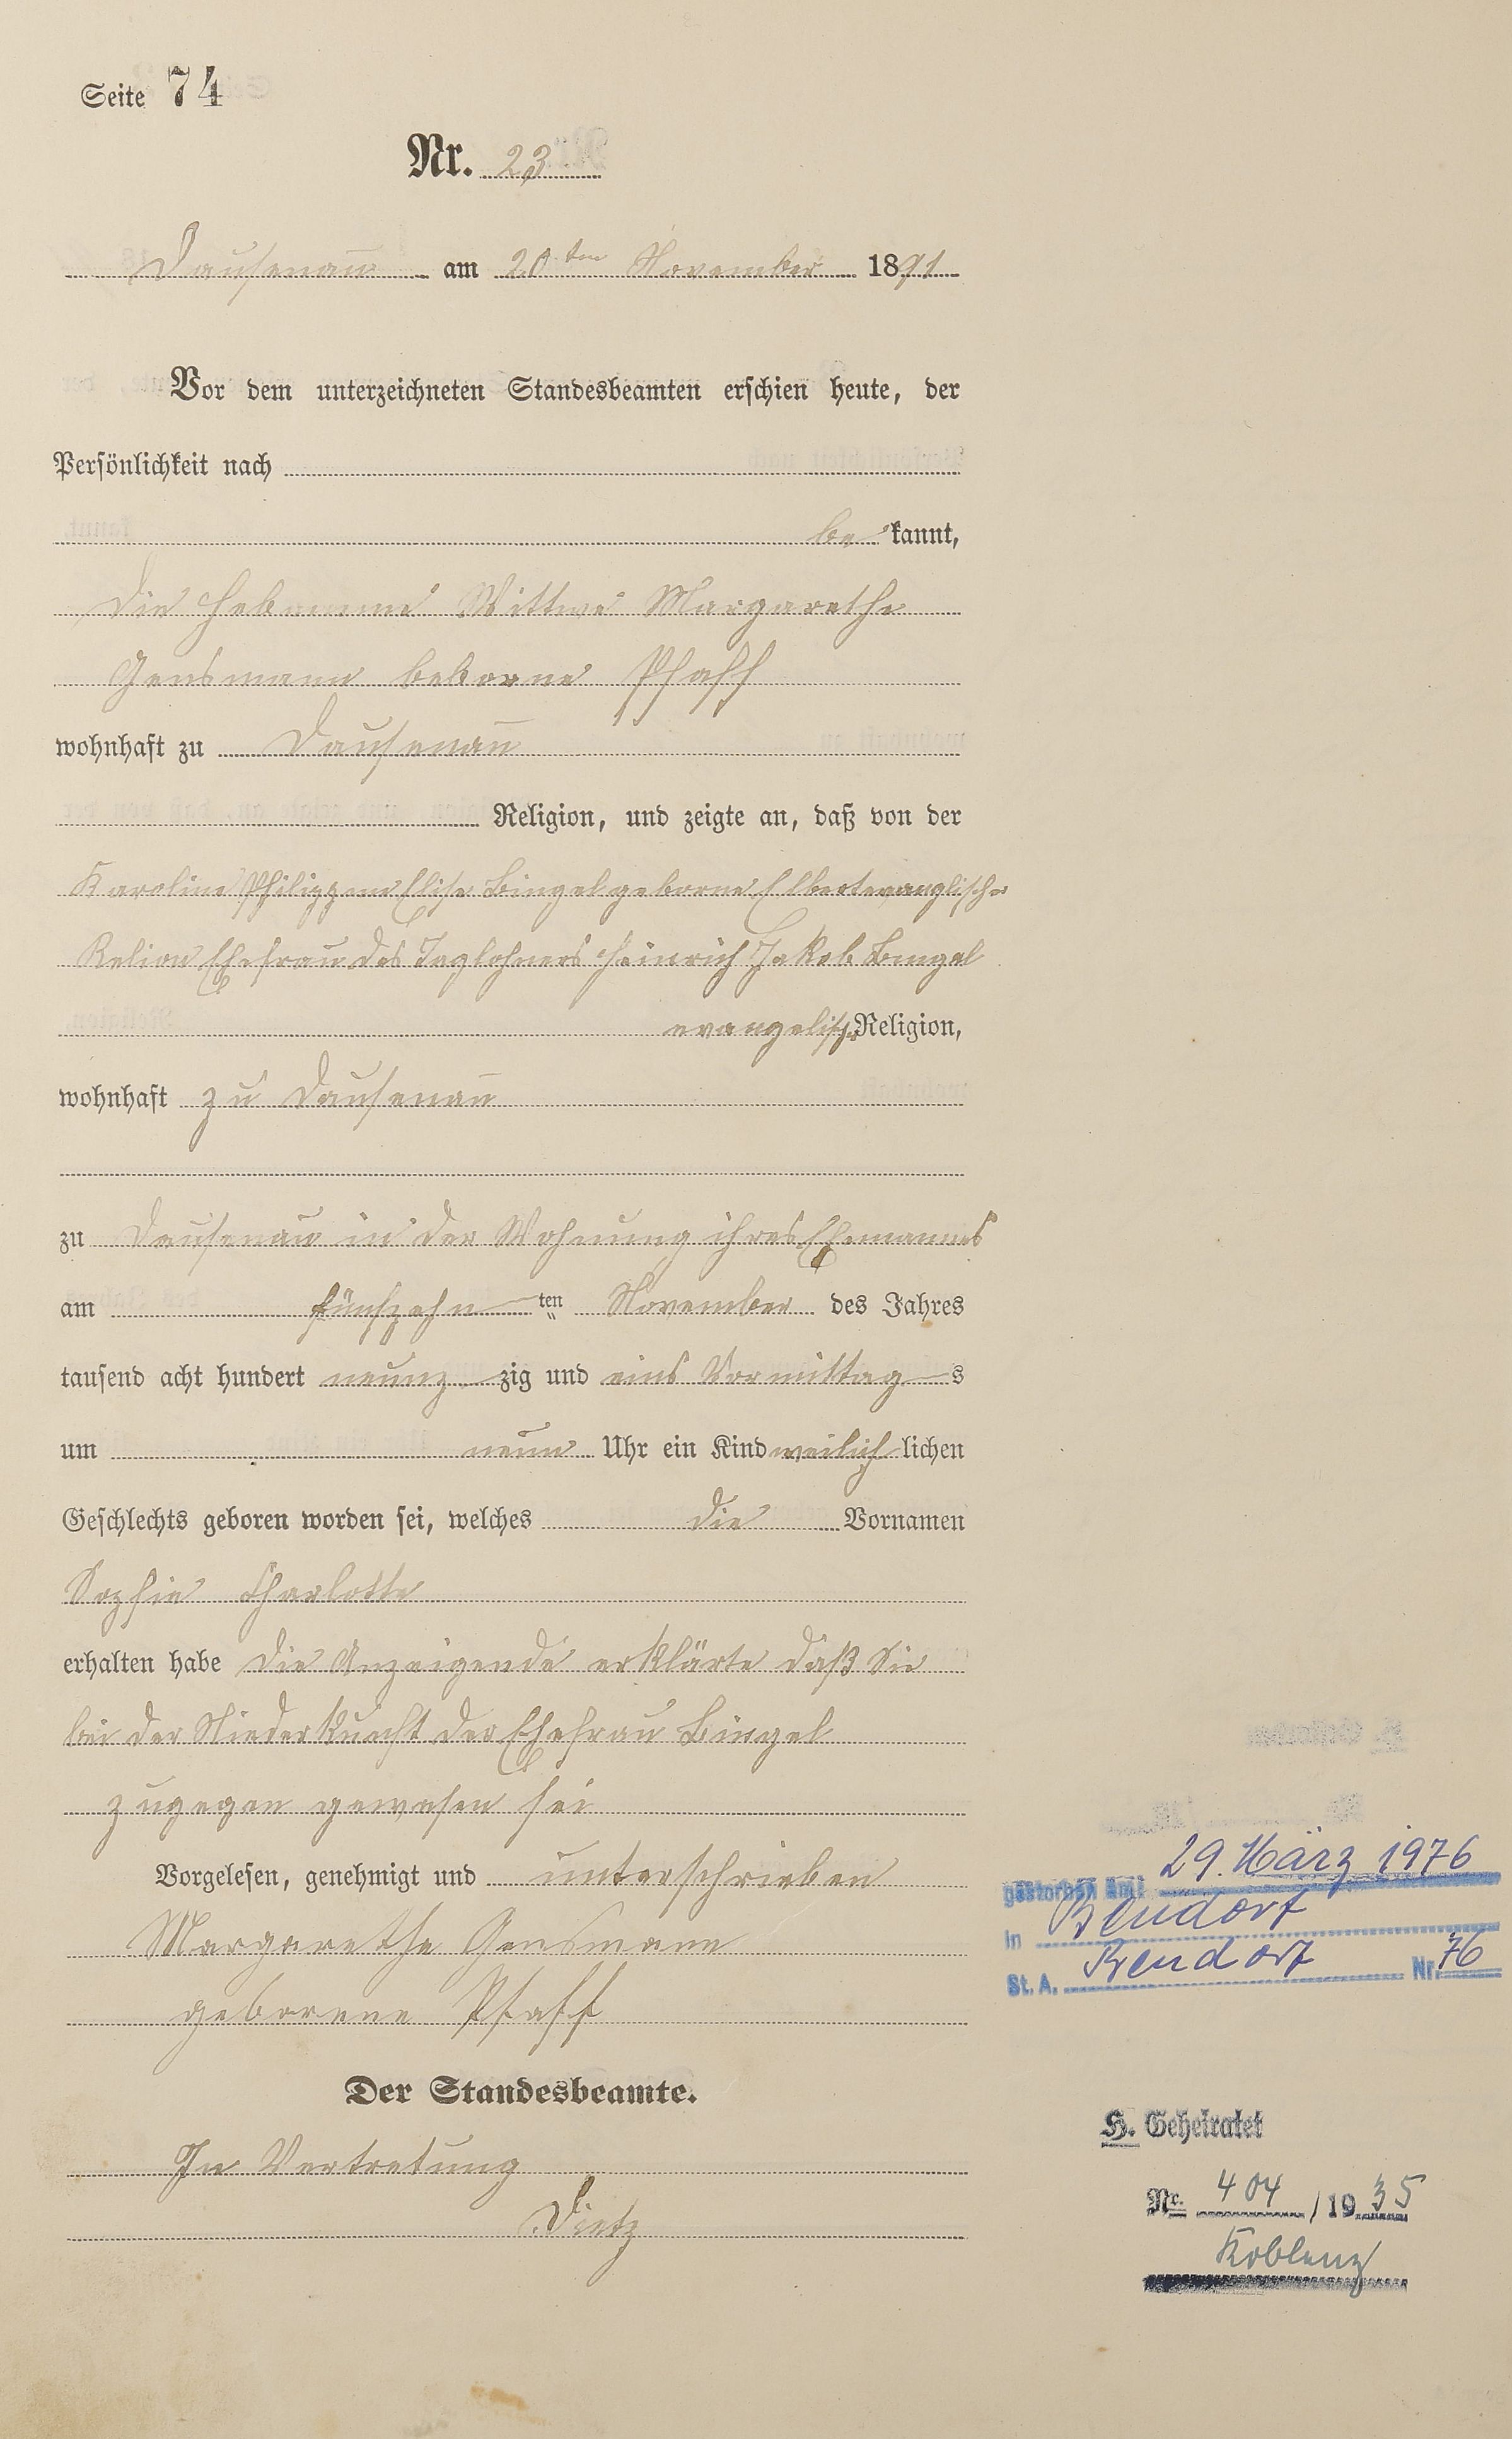 Seite 74
Nr. 23
Dausenau am 20ten November 1891
Vor dem unterzeichneten Standesbeamten erschien heute, der
Persönlichkeit nach
be kannt,
die Hebamme Wittwe Margarethe
Gensmann beborne Pfaff
wohnhaft zu Dausenau
Religion, und zeigte an, daß von der
Karoline Philippine Elise Bingel geborne Elbert evanglischer
Relion Ehefrau des Taglohners Heinrich Jakob Bingel
evangelischer Religion,
wohnhaft zu Dausenau
zu Dausenau in der Wohnung ihres Ehemannes
am fünfzehn ten November des Jahres
tausend acht hundert neunz zig und eins Vormittag s
um neun Uhr ein Kind weilich lichen
Geschlechts geboren worden sei, welches die Vornamen
Sophie Charlotte
erhalten habe die Anzeigende erklärte daß Sie
bei der Niederkunft der Ehefrau Bingel
zugegen gewesen sei
Vorgelesen, genehmigt und unterschrieben
Margarethe Gensmann
geborene Pfaff
Der Standesbeamte.
In Vertretung
Dietz
gestorben am: 29. März 1976
in Bendorf
St. A. Bendorf Nr. 76
H. Geheiratet
Nr. 404 / 1935
Koblenz